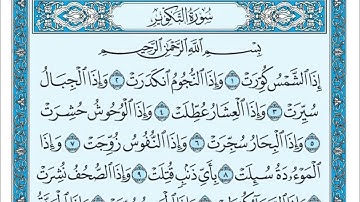 سُورَةُ التَّكْوِيرِ
بِسْمِ اللَّهِ الرَّحْمَٰنِ الرَّحِيمِ
إِذَا الشَّمْسُ كُوِّرَتْ ١ وَإِذَا النُّجُومُ انكَدَرَتْ ٢ وَإِذَا الْجِبَالُ
سُيِّرَتْ ٣ وَإِذَا الْعِشَارُ عُطِّلَتْ ٤ وَإِذَا الْوُحُوشُ حُشِرَتْ
٥ وَإِذَا الْبِحَارُ سُجِّرَتْ ٦ وَإِذَا النُّفُوسُ زُوِّجَتْ ٧ وَإِذَا
الْمَوْءُۥدَةُ سُئِلَتْ ٨ بِأَيِّ ذَنۢبٍ قُتِلَتْ ٩ وَإِذَا الصُّحُفُ نُشِرَتْ